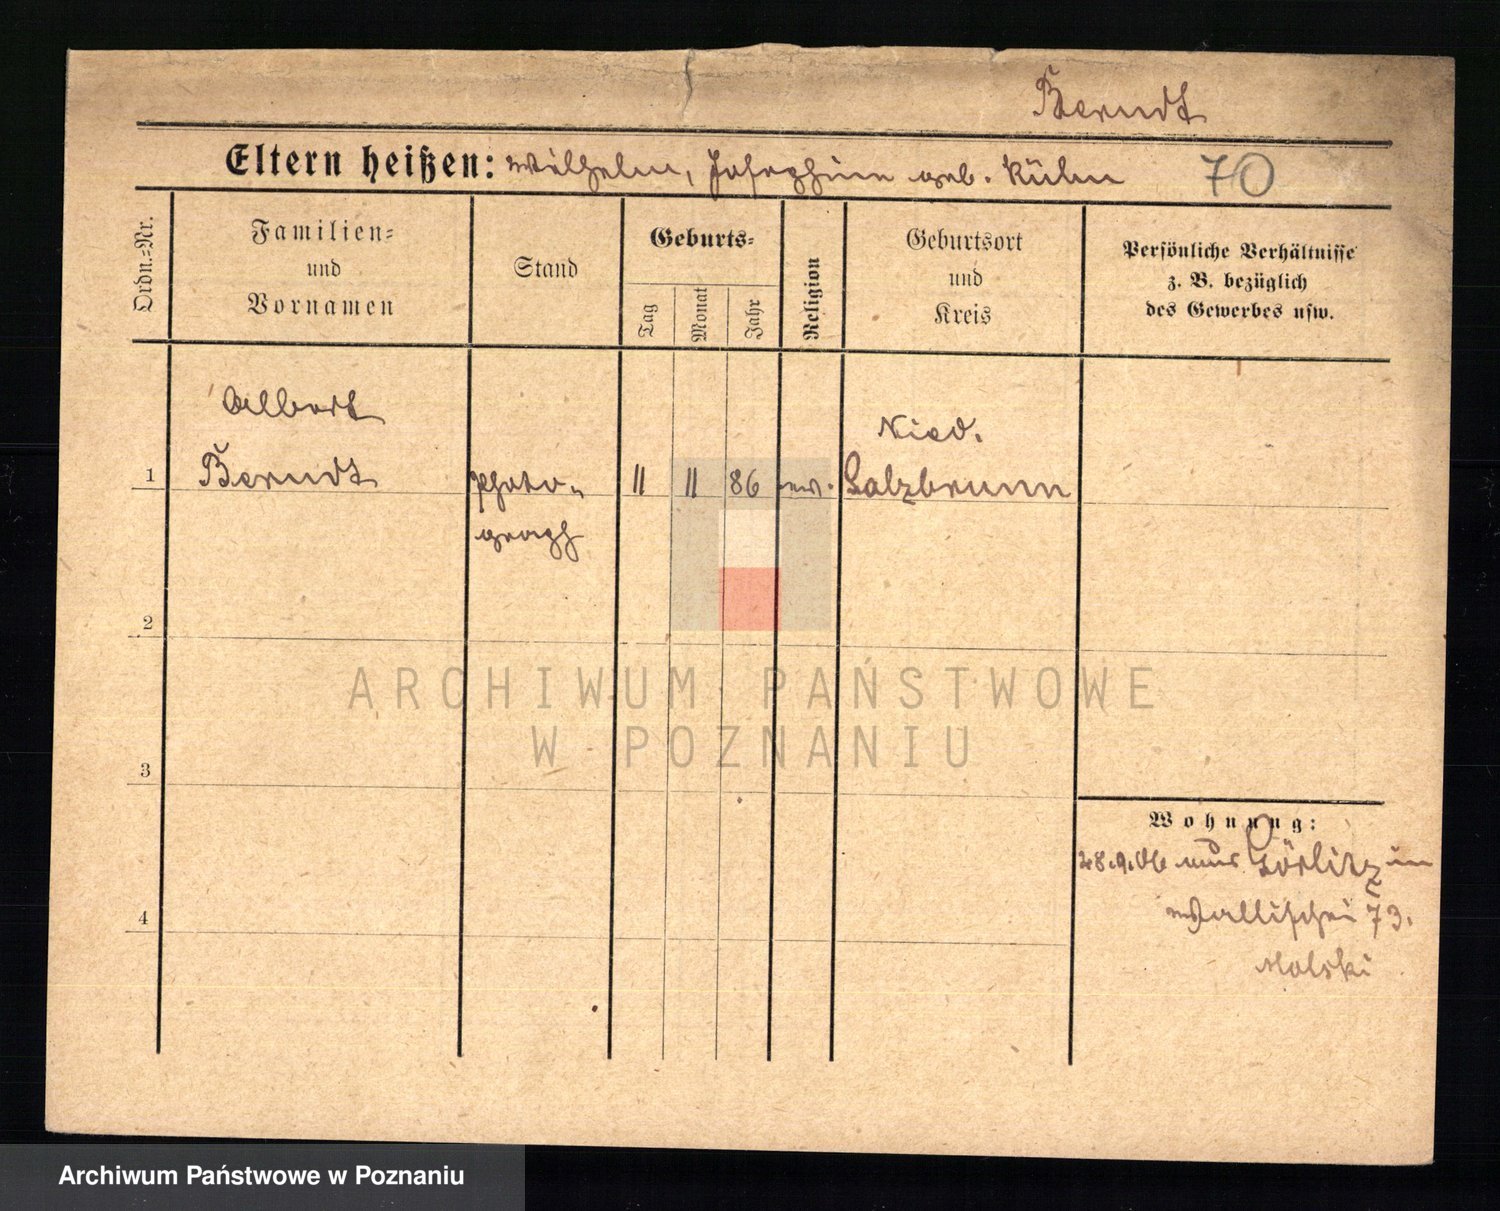 Berndt
Eltern heißen: Wilhelm, Josephine geb. Kühn 70
Ordn.-Nr.
Familien-
und
Vornamen
Stand
Geburts-
Tag
Monat
Jahr
Religion
Geburtsort
und
Kreis
Persönliche Verhältnisse
z. B. bezüglich
des Gewerbes usw.
Albert
Nied.
1 Berndt Photo- 11 11 86 ev. Salzbrunn
graph
2
3
4
Wohnung:
28.9.06 aus Görlitz in
Wallischei 73.
Molski
ARCHIWUM PAŃSTWOWE
W POZNANIU
Archiwum Państwowe w Poznaniu